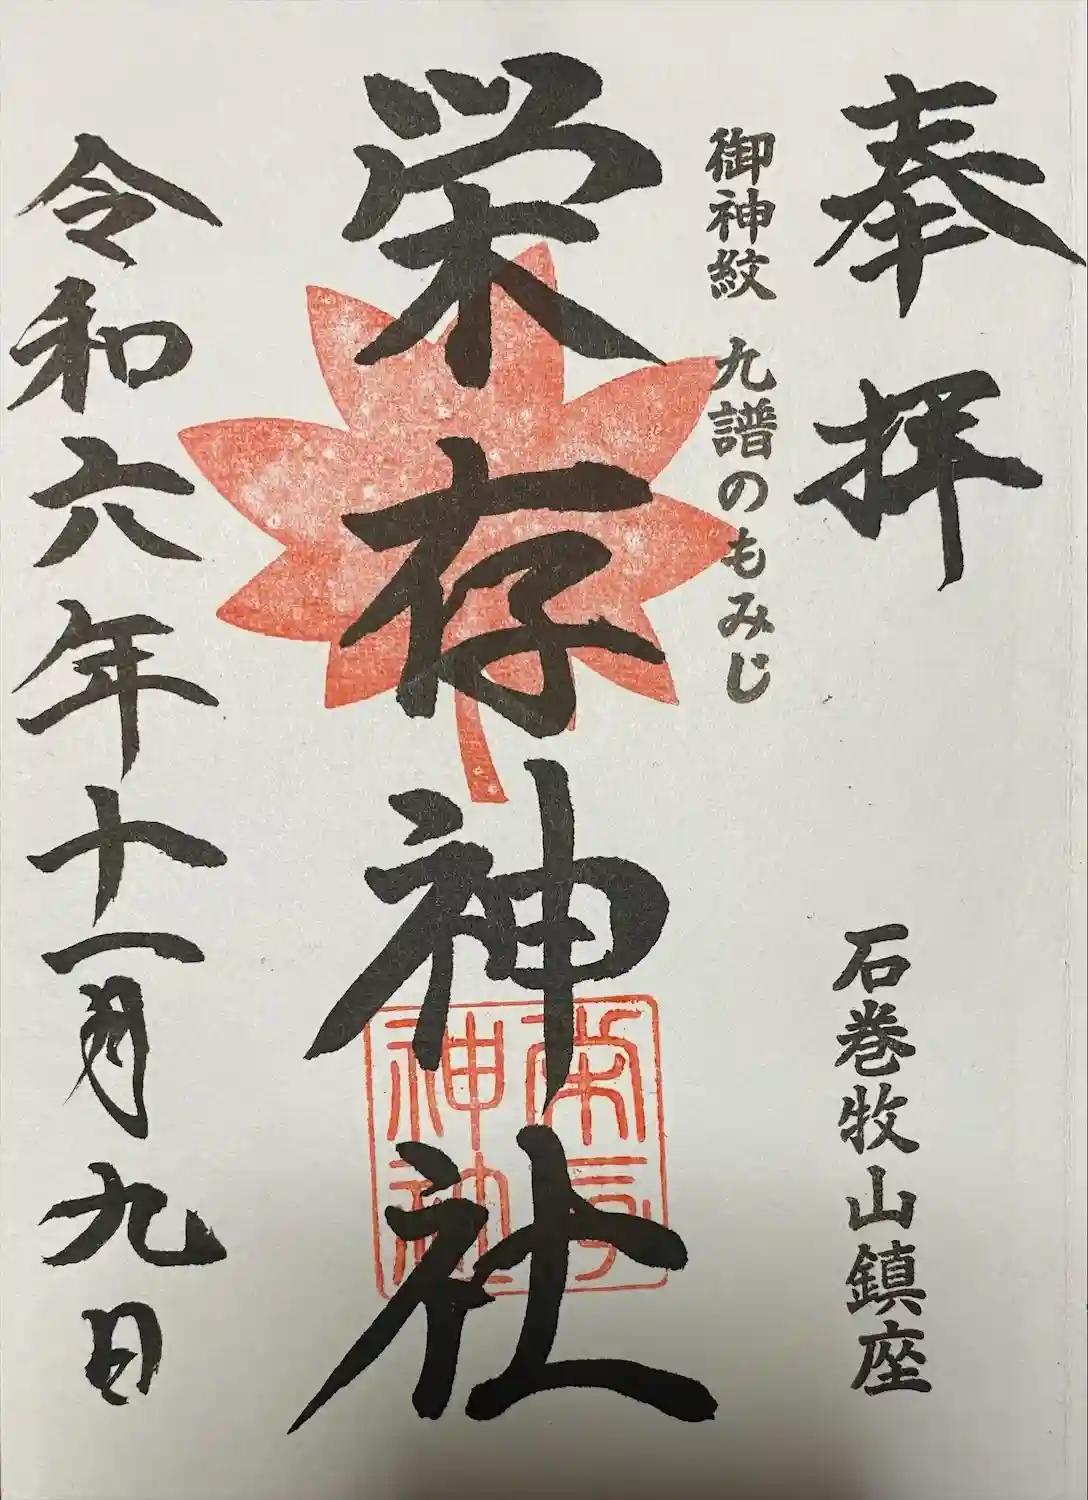 奉拝
石巻牧山鎮座
御神紋 九譜のもみじ
栄存神社
栄存神社
令和六年十一月九日